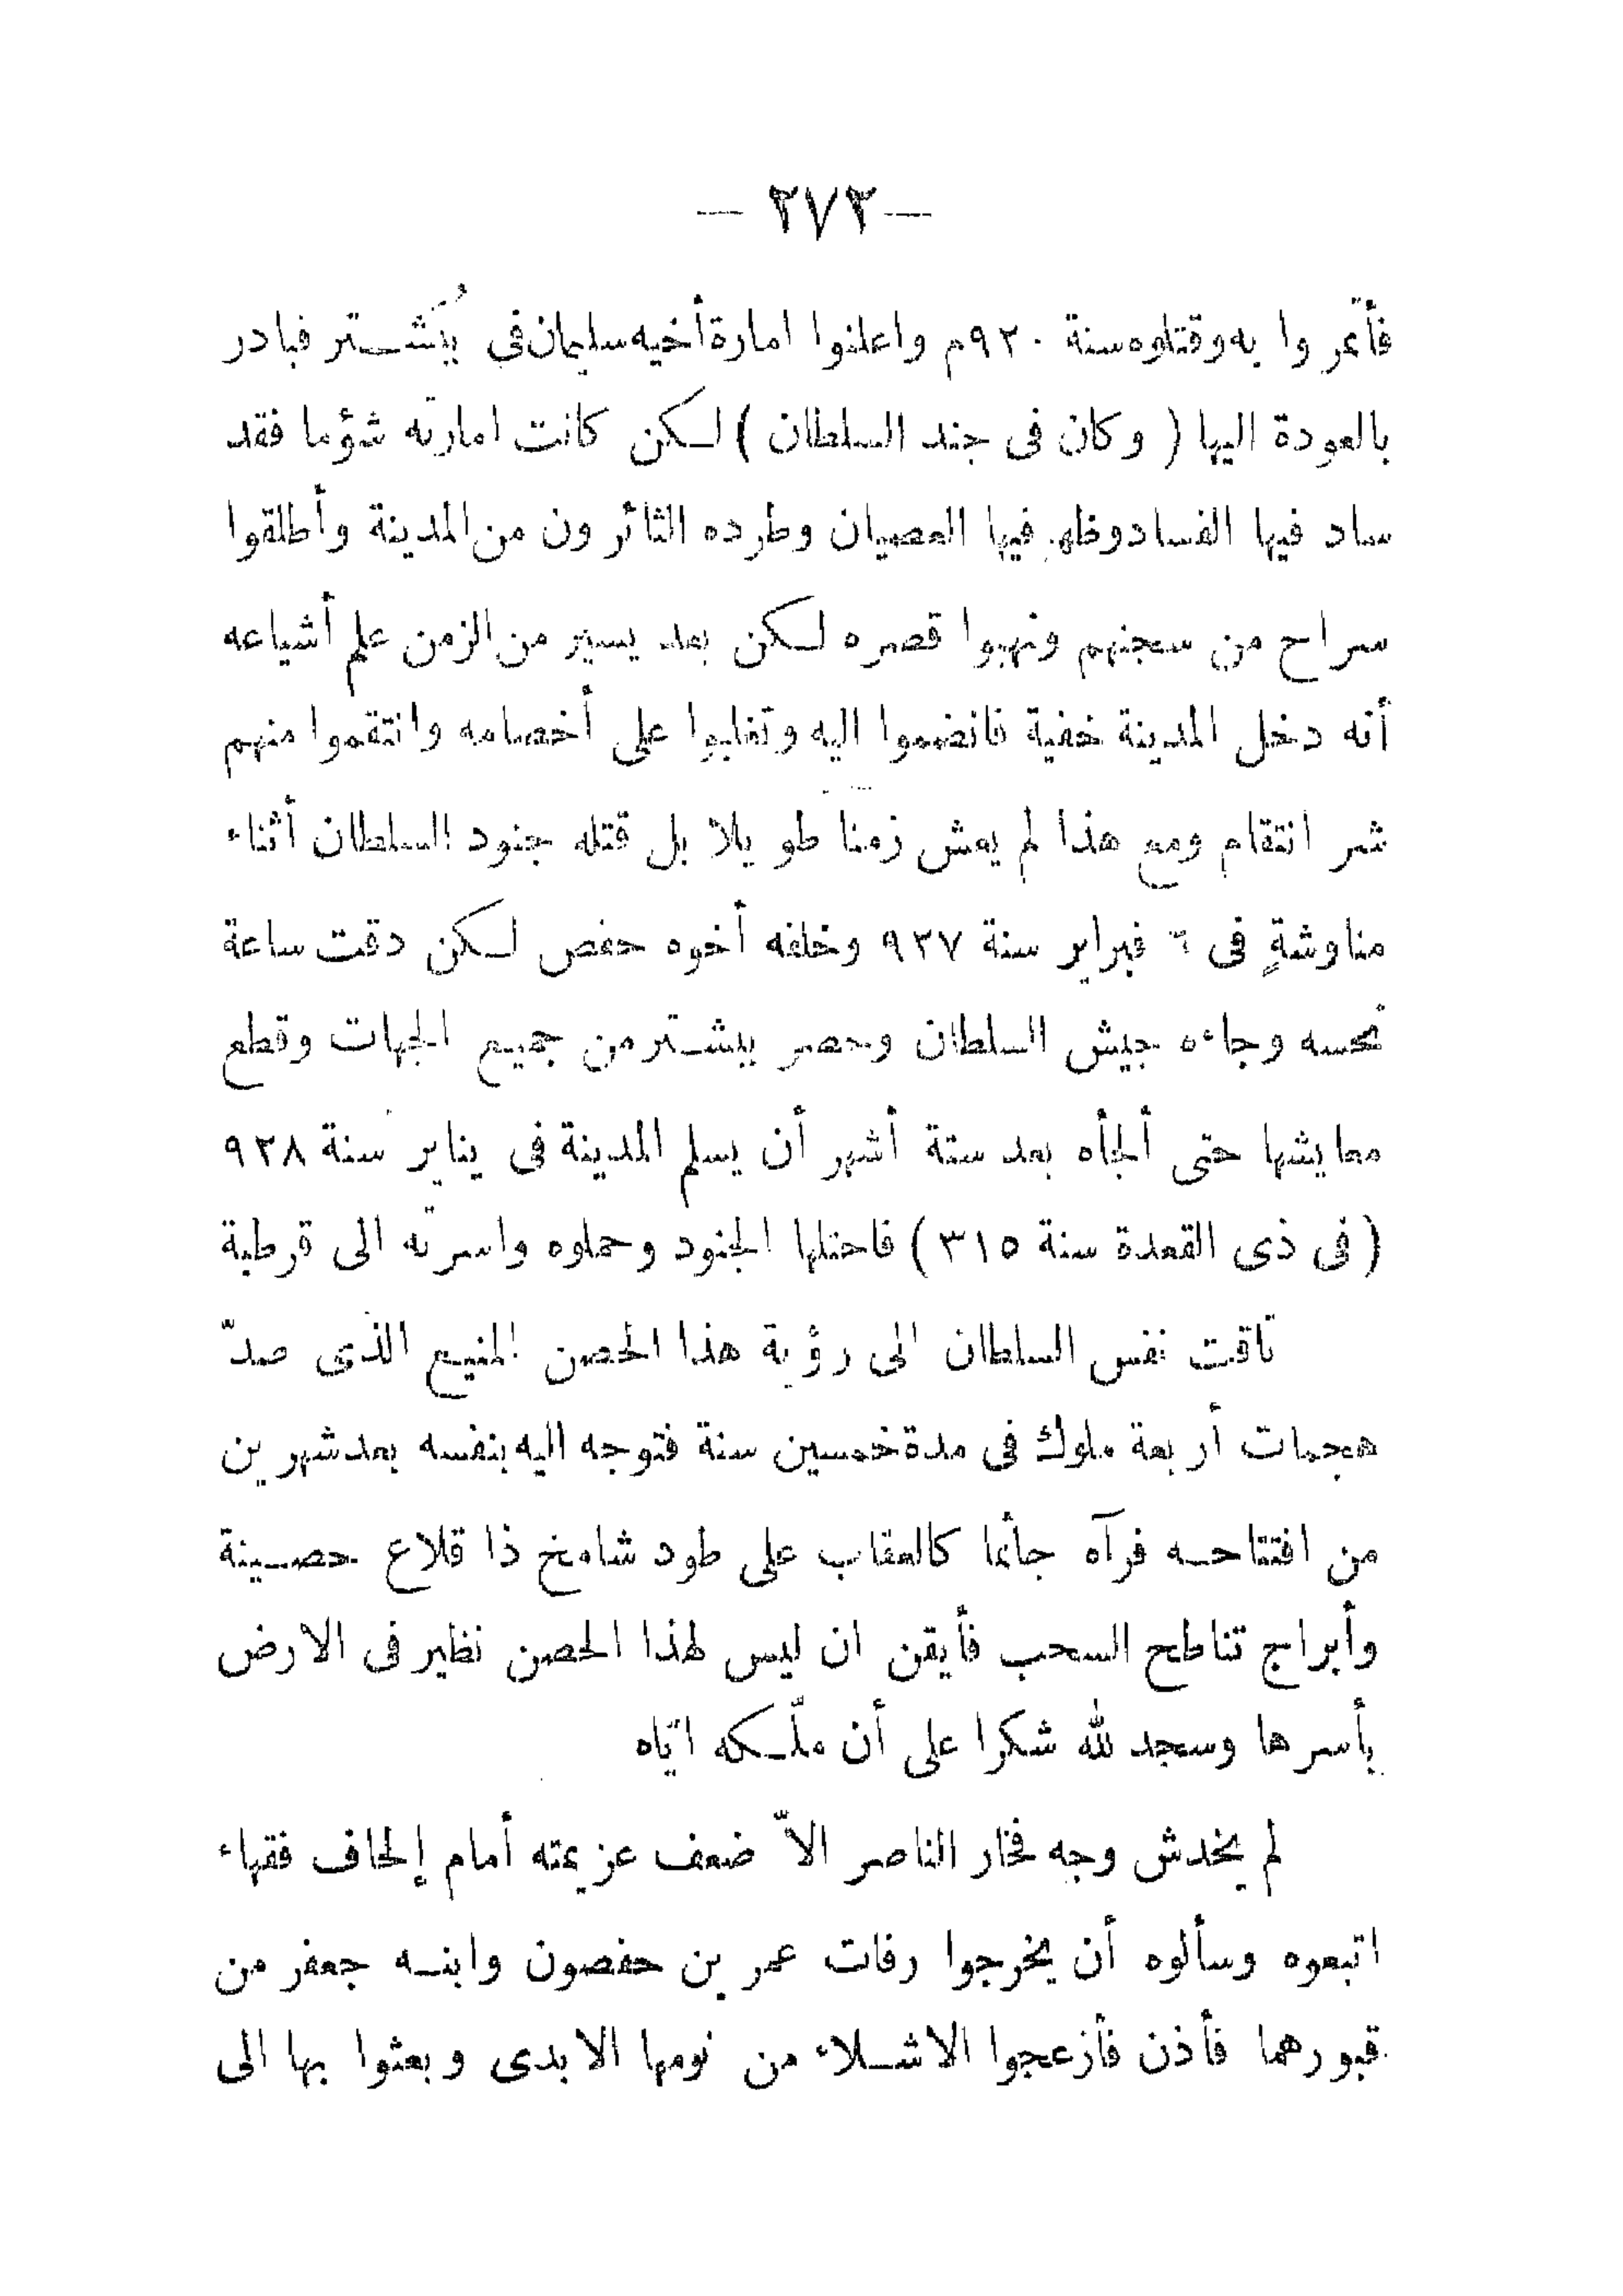 — ٢٧٢ —
فأتمروا به وقتلوه سنة ٩٢٠م واعلنوا امارة أخيه سليمان فى بُبَشـتر فبادر
بالعودة اليها ( وكان فى جند السلطان ) لـكن كانت امارته شؤما فقد
ساد فيها الفساد وظهر فيها العصيان وطرده الثائرون من المدينة وأطلقوا
سراح من سجنهم ونهبوا قصره لـكن بعد يسير من الزمن علم أشياعه
أنه دخل المدينة خفية فانضموا اليه وتغلبوا على أخصامه وانتقموا منهم
شر انتقام ومع هذا لم يعش زمنا طويلا بل قتله جنود السلطان أثناء
مناوشةٍ فى ٦ فبراير سنة ٩٢٧ وخلفه أخوه حفص لـكن دقت ساعة
نحسه وجاءه جيش السلطان وحصر ببشـتر من جميع الجهات وقطع
معايشها حتى ألجأه بعد ستة أشهر أن يسلم المدينة فى يناير سنة ٩٢٨
( فى ذى القعدة سنة ٣١٥ ) فاحتلها الجنود وحملوه واسرته الى قرطبة
تاقت نفس السلطان الى رؤية هذا الحصن المنيع الذى صدّ
هجمات أربعة ملوك فى مدة خمسين سنة فتوجه اليه بنفسه بعد شهرين
من افتتاحـه فرآه جاثما كالعقاب على طود شامخ ذا قلاع حصـينة
وأبراج تناطح السحب فأيقن ان ليس لهذا الحصن نظير فى الارض
بأسرها وسجد لله شكرا على أن ملّـكه ايّاه
لم يخدش وجه فخار الناصر الاّ ضعف عزيمته أمام إلحاف فقهاء
اتبعوه وسألوه أن يخرجوا رفات عمر بن حفصون وابنـه جعفر من
قبورهما فأذن فأزعجوا الاشـلاء من نومها الابدى وبعثوا بها الى